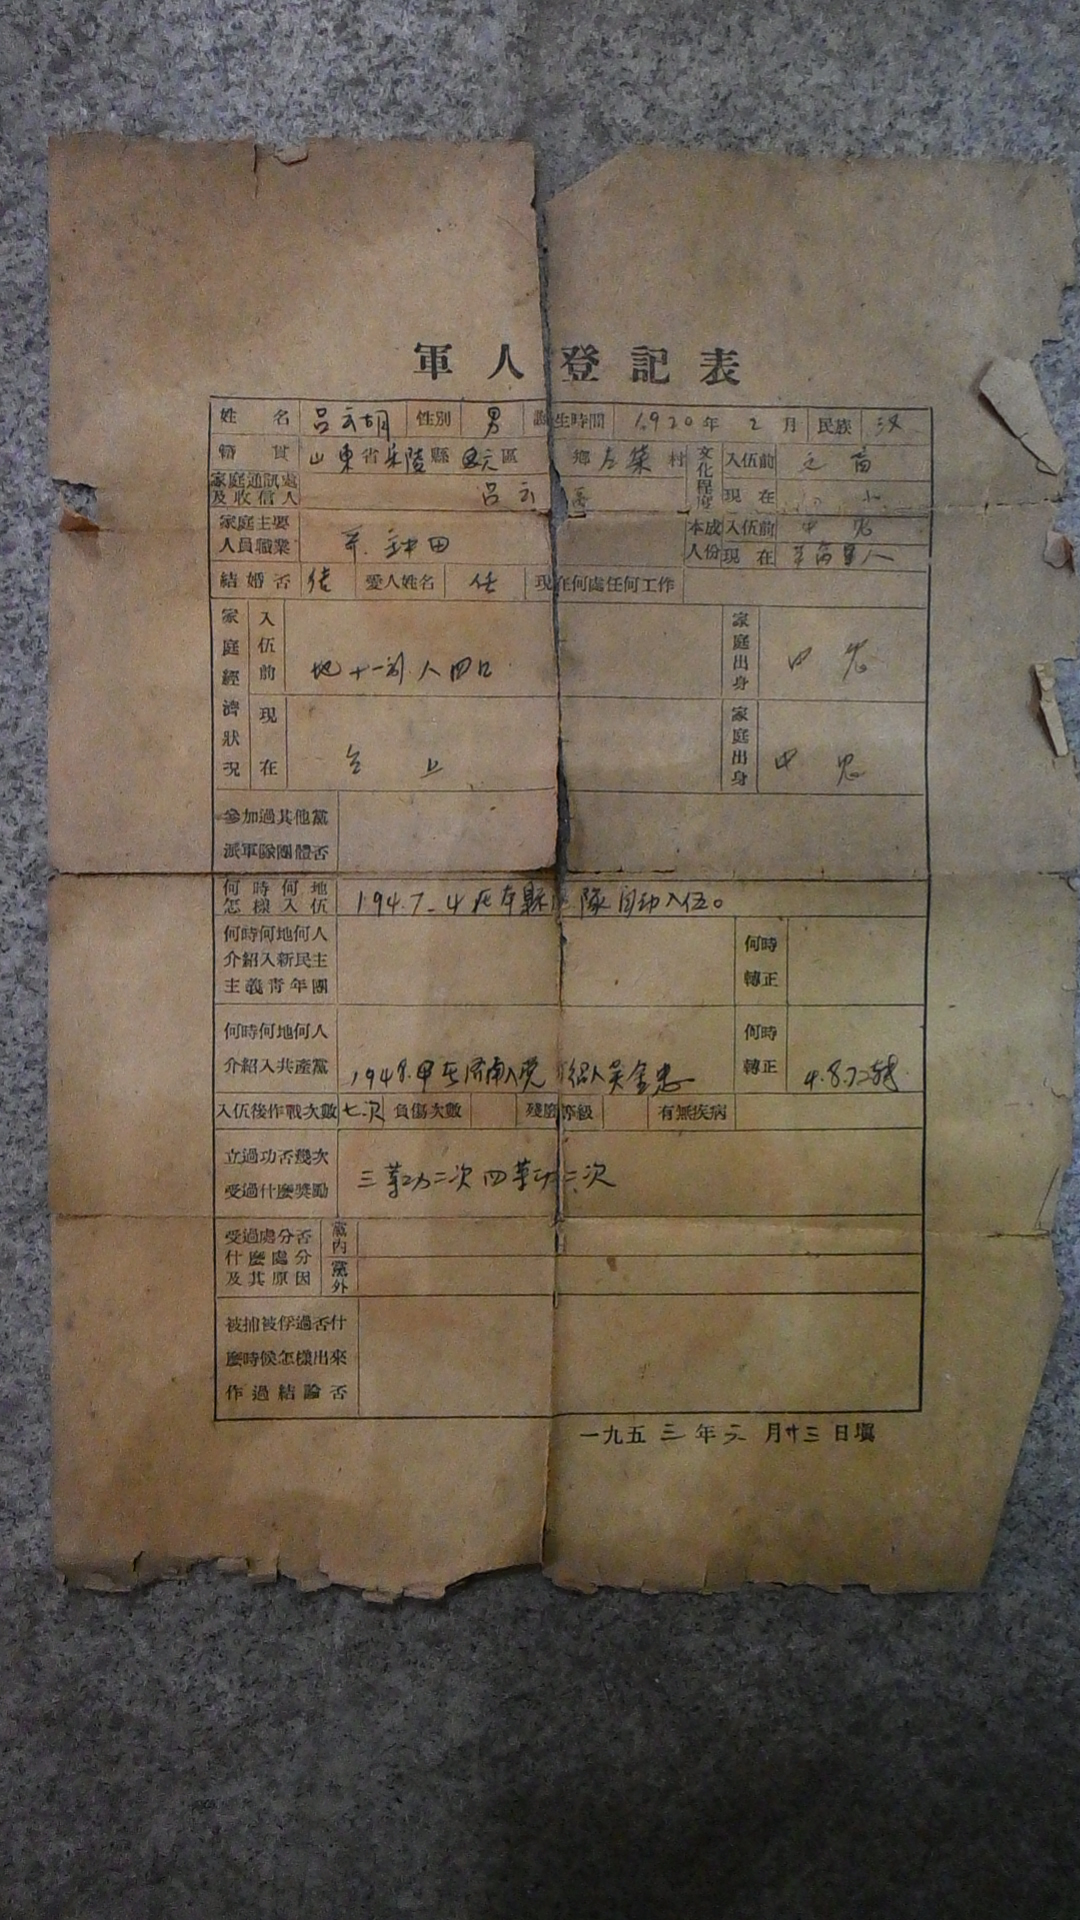 軍人登記表
姓名 呂云胡 性別 男 誕生時間 1920年2月 民族 汉
籍貫 山東省乐陵縣 區 鄉 村 文化程度 入伍前 文盲
家庭通訊處及收信人 呂云 現在
家庭主要人員職業 种田 本人成份 入伍前 中农
現在 革命軍人
結婚否 结 愛人姓名 任 現在何處任何工作
家庭經濟狀況 入伍前 地十一亩.人四口. 家庭出身 中农
現在 仝上 家庭出身 中农
參加過其他黨派軍隊團體否
何時何地怎樣入伍 1947-4在本縣 隊自动入伍。
何時何地何人介紹入新民主主義青年團 何時轉正
何時何地何人介紹入共產黨 1948. 在济南入党 绍人吴金忠 何時轉正 4.8.12轉
入伍後作戰次數 七次 負傷次數 殘廢等級 有無疾病
立過功否幾次受過什麼獎勵 三等功二次四等功二次
受過處分否什麼處分及其原因 黨內
黨外
被捕被俘過否什麼時候怎樣出來作過結論否
一九五三年 月廿三日填